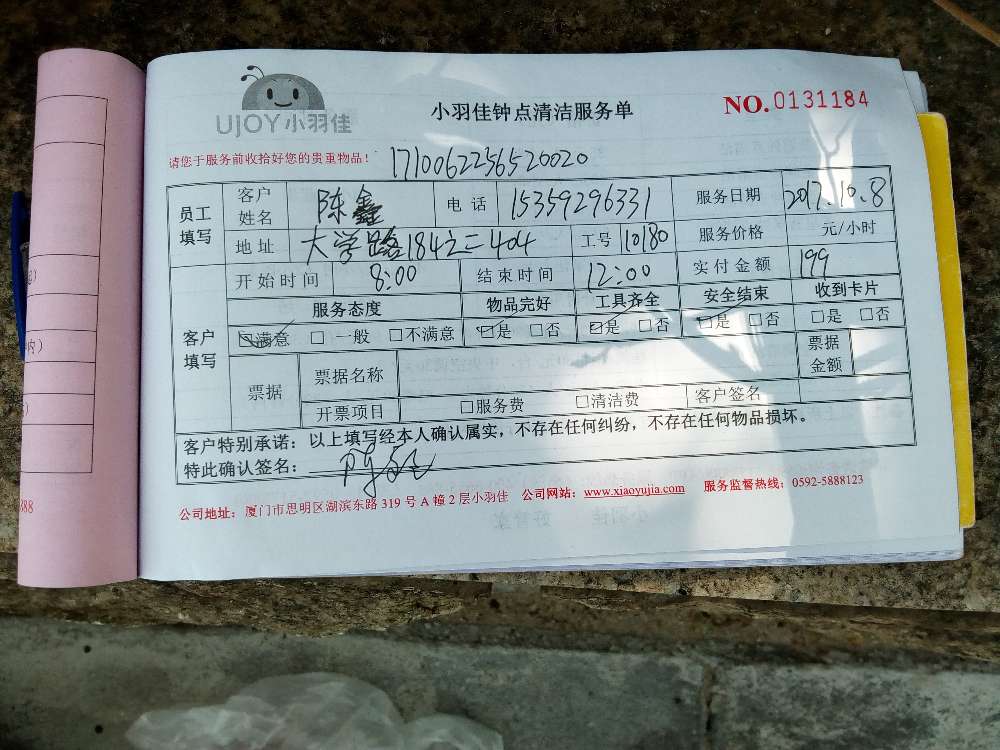 UJOY小羽佳
小羽佳钟点清洁服务单
NO.0131184
请您于服务前收拾好您的贵重物品！
1710062256520020
员工填写 客户姓名 陈鑫 电话 15359296331 服务日期 2017.10.8
地址 大学路184之二404 工号 10180 服务价格 元/小时
客户填写 开始时间 8:00 结束时间 12:00 实付金额 199
服务态度 物品完好 工具齐全 安全结束 收到卡片
☑满意 □一般 □不满意 ☑是 □否 ☑是 □否 ☑是 □否 □是 □否
票据 票据名称 票据金额
开票项目 □服务费 □清洁费 客户签名
客户特别承诺：以上填写经本人确认属实，不存在任何纠纷，不存在任何物品损坏。
特此确认签名：
公司地址：厦门市思明区湖滨东路319号A幢2层小羽佳 公司网站：www.xiaoyujia.com 服务监督热线：0592-5888123
内）
888